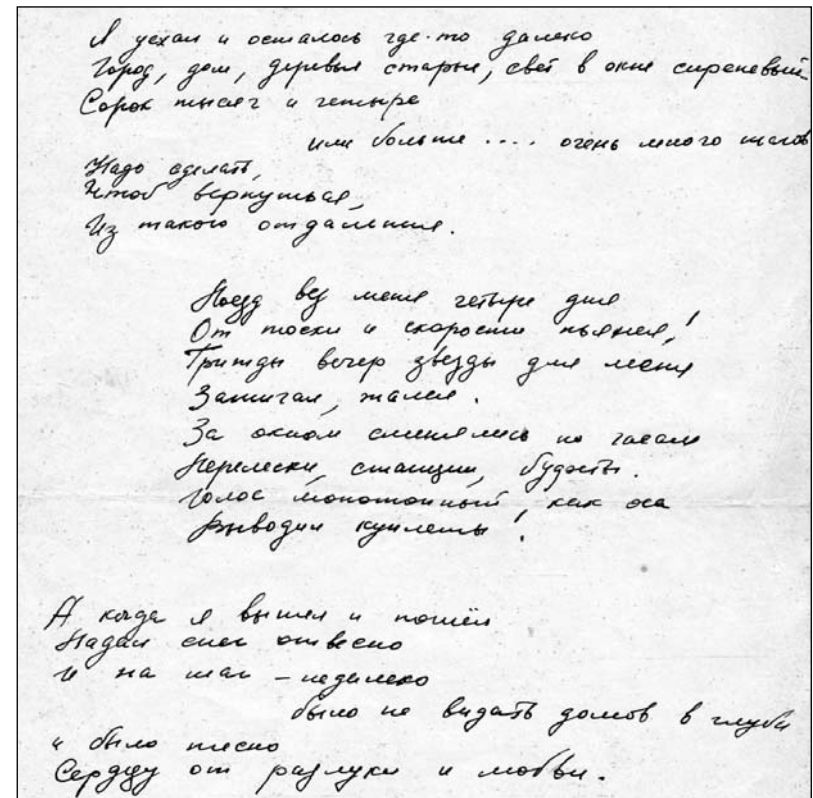 Я уехал и осталось где-то далеко
Город, дом, деревья старые, свет в окне сиреневый
Сорок тысяч и четыре
или больше .... очень много шагов
Надо сделать,
Чтоб вернуться,
Из такого отдаления.
Поезд вёз меня четыре дня
От тоски и скорости пьянея,!
Трижды вечер звёзды для меня
Зажигал, жалея.
За окном сменялись по часам
Перелески, станции, будости.
Голос монотонный, как оса
Выводил куплеты!
А когда я вышел и пошёл
Падал снег отвесно
и на шаг – недалеко
было не видать домов в глуби
и было тесно
Сердцу от разлуки и любви.